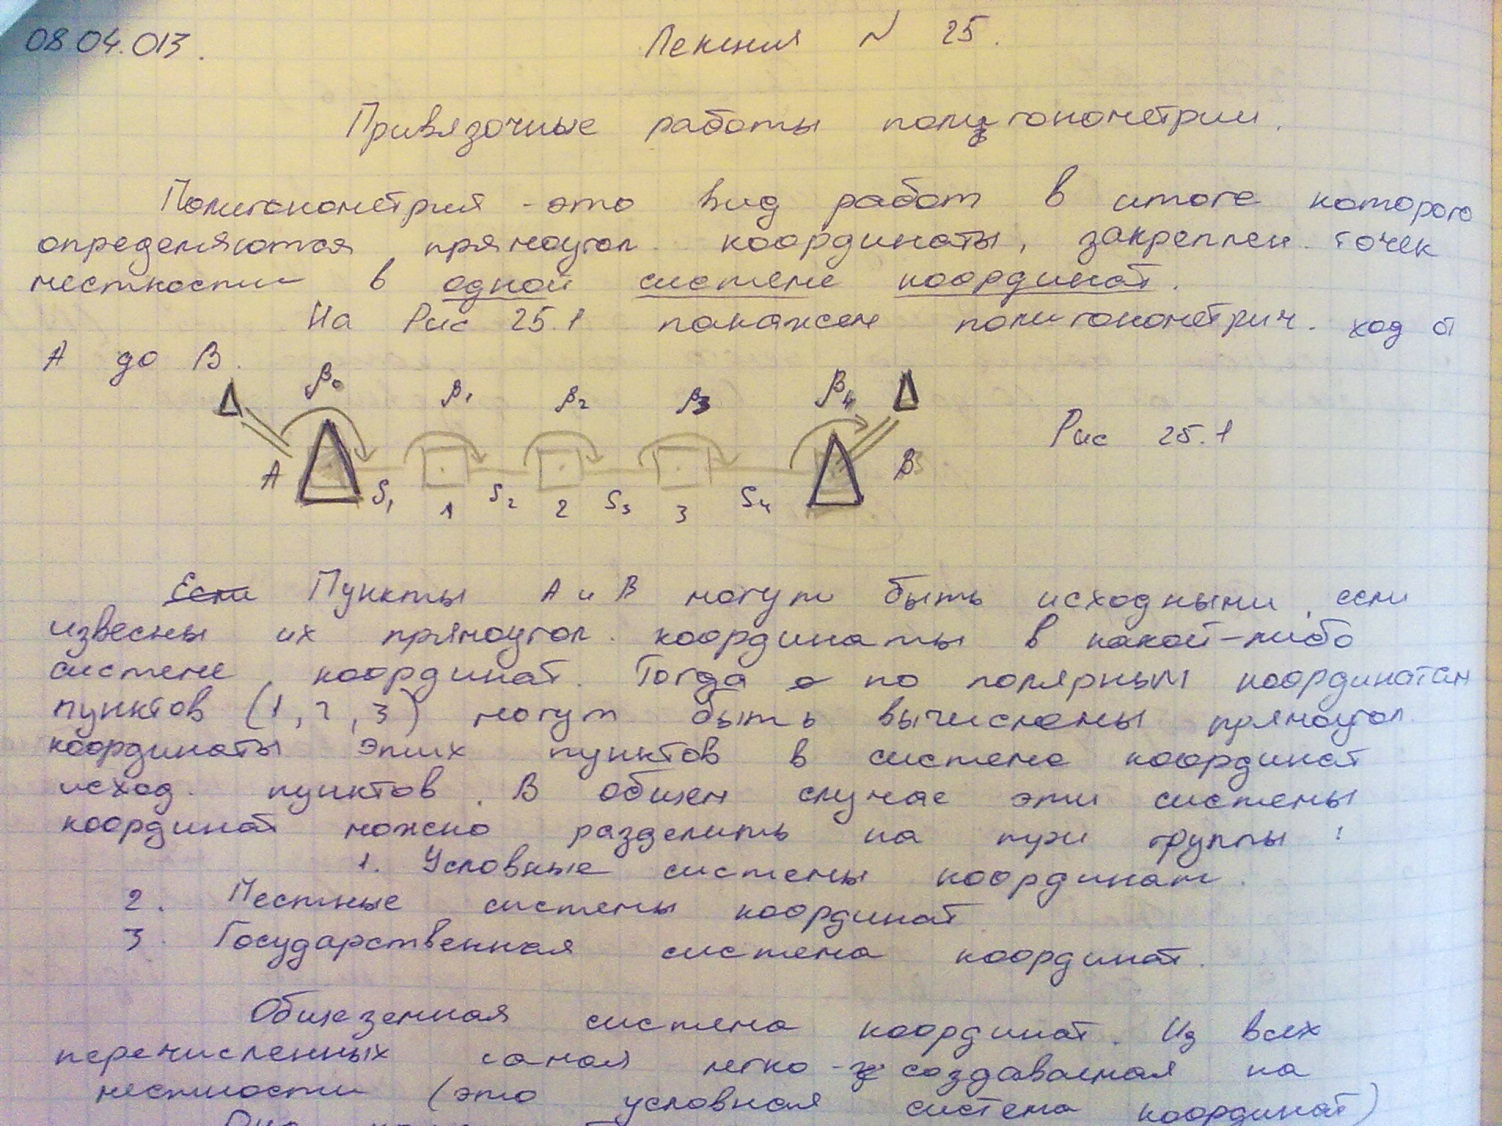 08.04.013.
Лекция N 25.
Привязочные работы полигонометрии.
Полигонометрия - это вид работ в итоге которого
определяются прямоугол. координаты, закреплен. точек
местности в одной системе координат.
На Рис 25.1 покажем полигонометрич. ход от
А до В.
β₀ β₁ β₂ β₃ β₄
Рис 25.1
А В
S₁ 1 S₂ 2 S₃ 3 S₄
Если Пункты А и В могут быть исходными, если
извесны их прямоугол. координаты в какой-либо
системе координат. Тогда по полярным координатам
пунктов (1, 2, 3) могут быть вычислены прямоугол
координаты этих пунктов в системе координат
исход. пунктов. В общем случае эти системы
координат можно разделить на три группы:
1. Условные системы координат.
2. Местные системы координат
3. Государственная система координат.
Общеземная система координат. Из всех
перечисленных самая легко создаваемая на
местности (это условная система координат)